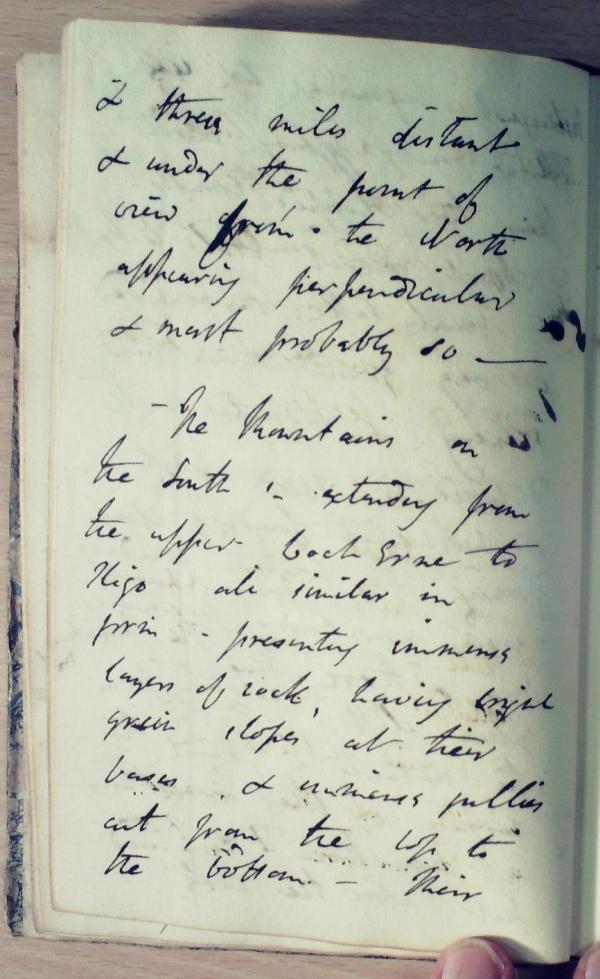 & three miles distant
& under the point of
view from the North
appearing perpendicular
& most probably so —
— The Mountains on
the South - extending from
the upper Loch Erne to
Sligo all similar in
form - presenting immense
layers of rock, having bright
green slopes at their
bases, & immense gullies
cut from the top to
the bottom. — Their